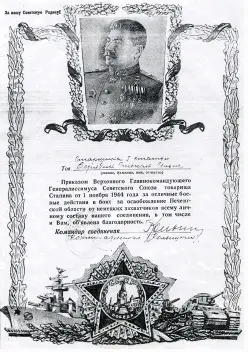 За нашу Советскую Родину!
Тов
(звание, фамилия, имя, отчество)
Приказом Верховного Главнокомандующего
Генералиссимуса Советского Союза товарища
Сталина от 1 ноября 1944 года за отличные бое-
вые действия в боях за освобождение Печенг-
ской области от немецких захватчиков всему лич-
ному составу нашего соединения, в том числе
и Вам, объявлена благодарность.
Командир соединения